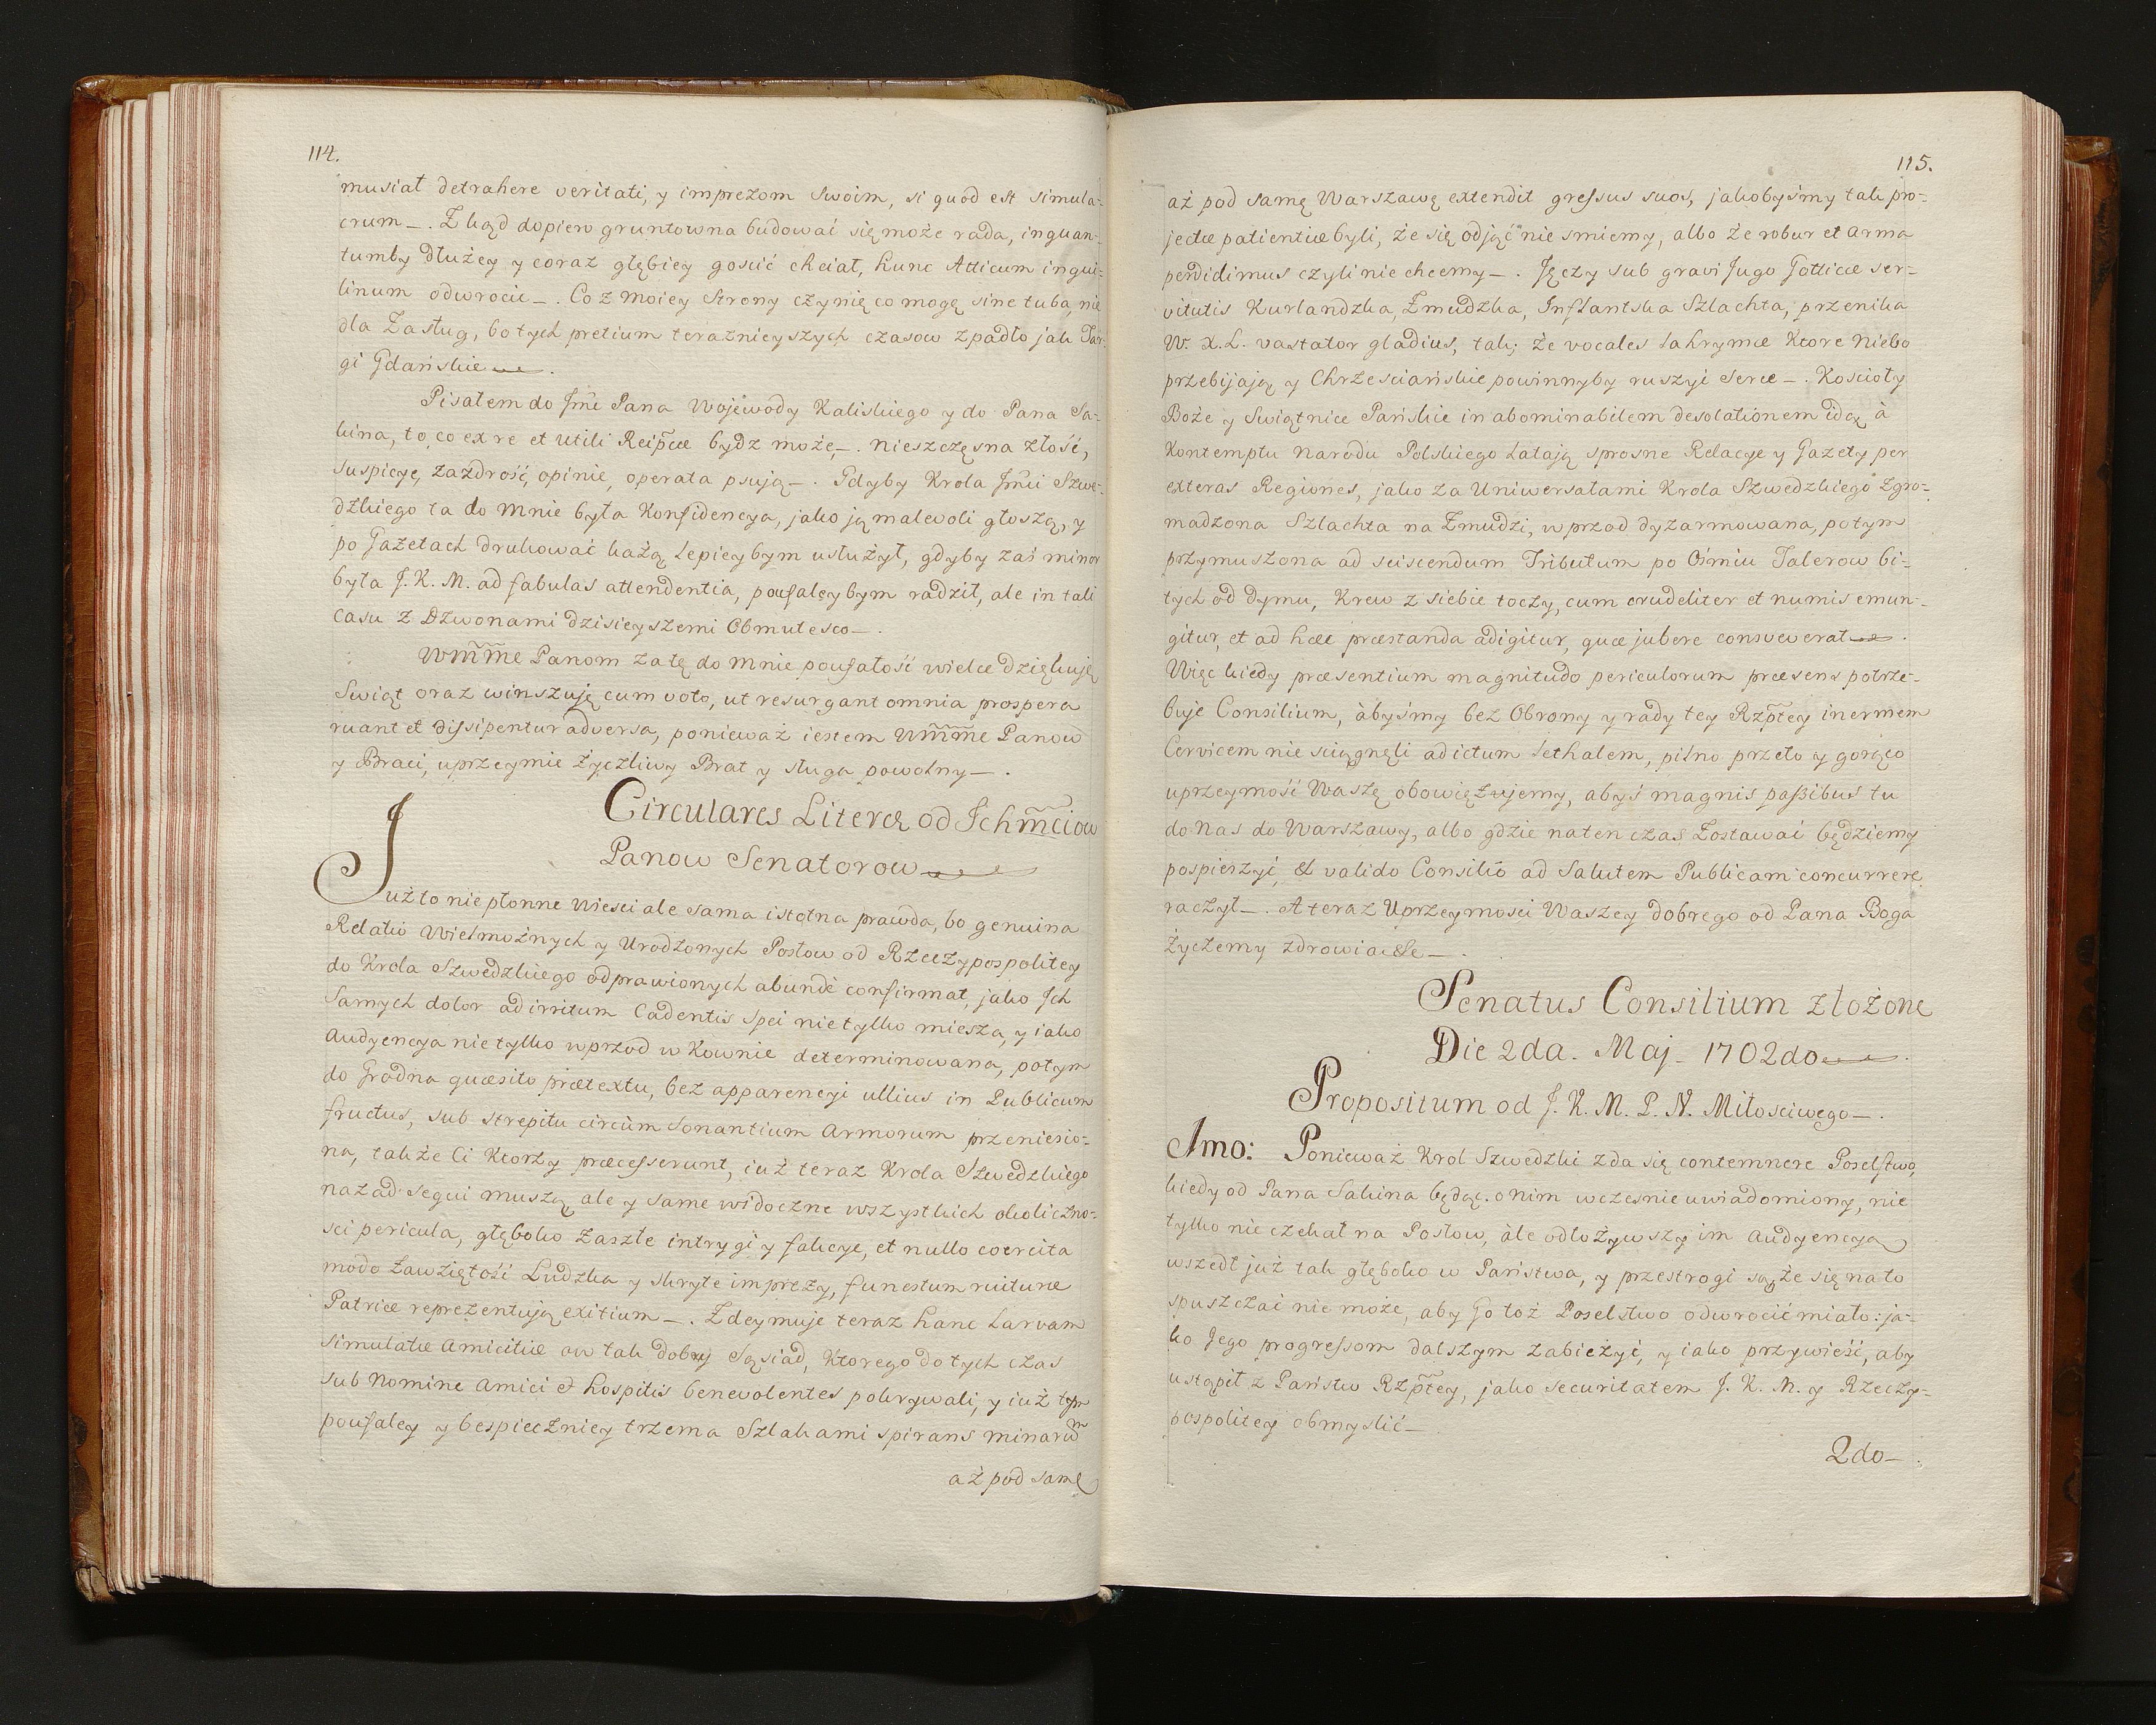 114.
musiał detrahere veritati, y imprezom swoim, si quod est simula-
crum_. Zkąd dopiero gruntowna budować się może rada, inquan-
tumby dłużey y coraz głębiey gościć chciał, hunc Atticum inqui-
linum odwrocić_. Co z moiey Strony czynię co mogę sine tuba, nie
dla Zasług, bo tych pretium teraznieyszych czasow zpadło jak Tar-
gi Gdańskie.
Pisałem do Jmci Pana Wojewody Kaliskiego y do Pana Sa-
kina, to, co ex re et utili Reipcæ bydz może_. nieszczęsna złość,
suspicye, zazdrość, opinie, operata psują_. Gdyby Krola Jmci Szwe-
dzkiego ta do mnie była Konfidencya, jako ją malevoli głoszą, y
po Gazetach drukować każą lepiey bym usłużył, gdyby zaś minor
była J. K. M. ad fabulas attendentia, poufaley bym radził, ale in tali
casu z Dzwonami dzisieyszemi Obmutesco_.
Wmme Panom za tę do mnie poufałość wielce dziękuję
Swiąt oraz winszuję cum voto, ut resurgant omnia prospera
ruant et dissipentur adversa, ponieważ iestem Wmme Panow
y Braci, uprzeymie życzliwy Brat y sługa powolny_.
Circulares Literæ od Ichmciow
Panow Senatorow
Już to nie płonne wieści ale sama istotna prawda, bo genuina
Relatio Wielmożnych y Urodzonych Posłow od Rzeczypospolitey
do Krola Szwedzkiego odprawionych abundè confirmat, jako Ich
samych dolor ad irritum Cadentis Spei nie tylko miesza, y iako
Audyencya nie tylko wprzod w Kownie determinowana, potym
do Grodna quæsito prætextu, bez apparencyi ullius in Publicum
fructus, sub strepitu circùm Sonantium Armorum przeniesio-
na, także Ci ktorzy præcesserunt, iuż teraz Krola Szwedzkiego
nazad sequi muszą, ale y same widoczne wszystkich okoliczno-
sci pericula, głęboko zaszłe intrygi y fakcye, et nullo coercita
modo zawziętość Ludzka y skryte imprezy, funestum ruituræ
Patriæ reprezentują exitium_. Zdeymuje teraz hanc larvam
simulatæ amicitiæ ow tak dobry Sąsiad, ktorego do tych czas
sub nomine Amici et hospitis benevolentes pokrywali, y iuż tym
poufaley y bespieczniey trzema Szlakami spirans minarum
aż pod samę
115.
aż pod samę Warszawę extendit gressus suos, jakobyśmy tak pro-
jectæ patientiæ byli, że się odjąć nie smiemy, albo że robur et arma
perdidimus czyli nie chcemy_. Jęczy sub gravi Jugo Gotticæ ser-
vitutis Kurlandzka, Zmudzka, Inflantska Szlachta, przenika
W. X. L. vastator gladius, tak; że vocales lakrymæ ktore Niebo
przebijają y Chrześciańskie powinnyby ruszyć serce_. Kościoły
Boże y Swiątnice Pańskie in abominabilem desolationem idą à
kontemptu narodu Polskiego latają sprosne Relacye y Gazety per
exteras Regiones, jako za Uniwersałami Krola Szwedzkiego zgro-
madzona Szlachta na Zmudzi, wprzod dyzarmowana, potym
przymuszona ad sciscendum Tributum po Ośmiu Talerow bi-
tych od dymu, Krew z siebie toczy, cum crudeliter et numis emun-
gitur, et ad hæc præstanda adigitur, quæ jubere consueverat.
Więc kiedy præsentium magnitudo periculorum præsens potrze-
buje Consilium, àbyśmy bez Obrony y rady tey Rzptey inermem
Cervicem nie sciągnęli ad ictum lethalem, pilno przeto y gorąco
uprzeymość Waszę obowięzujemy, abyś magnis passibus tu
do Nas do Warszawy, albo gdzie naten czas Zostawać będziemy
pospieszyć, & valido Consilio ad Salutem Publicam concurrere
raczył_. A teraz Uprzeymości Waszey dobrego od Pana Boga
życzemy zdrowia &c_.
Senatus Consilium złożone
Die 2da. Maj. 1702do
Propositum od J. K. M. P. N. Miłosciwego_.
Imo: Ponieważ Krol Szwedzki zda się contemnere Poselstwo,
kiedy od Pana Sakina będąc o nim wczesnie uwiadomiony, nie
tylko nie czekał na Posłow, àle odłożywszy im Audyencyą
wszedł już tak głęboko w Państwa, y przestrogi są, że się na to
spuszczać nie może, aby Go toż Poselstwo odwrocić miało: ja-
ko Jego progressom dalszym zabieżyć, y iako przywieść, aby
ustąpił z Państw Rzptey, jako securitatem J. K. M. y Rzeczy-
pospolitey obmyslić_
2do_.